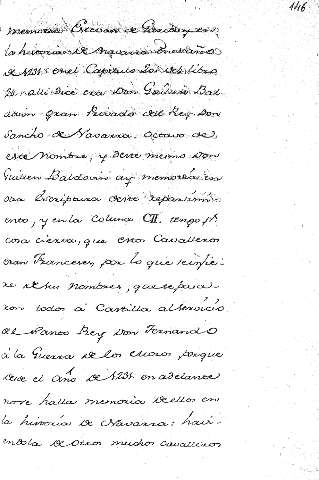 146
memorias Estevan de Garibay en
la historia de Navarra en el año
de 1231. en el Capitulo 201 del libro
25. alli dice era Don Guillen Bal
dovin gran Privado del Rey Don
Sancho de Navarra. Octavo de
este Nombre; y deste mesmo Don
Guillen Baldovin ay memorias en
otra Escriptura deste repartimi-
ento, y en la Coluna CII. tengo pr
cosa cierta, que estos Cavalleros
eran Franceses, por lo que se infie-
re de sus Nombres, que se pasa-
ron todos à Castilla al servicio
del Santo Rey Don Fernando
à la Guerra de los Moros, porque
desde el Año de 1231. en adelante
no se halla memoria de ellos en
la historia de Navarra: havi-
endola de otros muchos Cavalleros